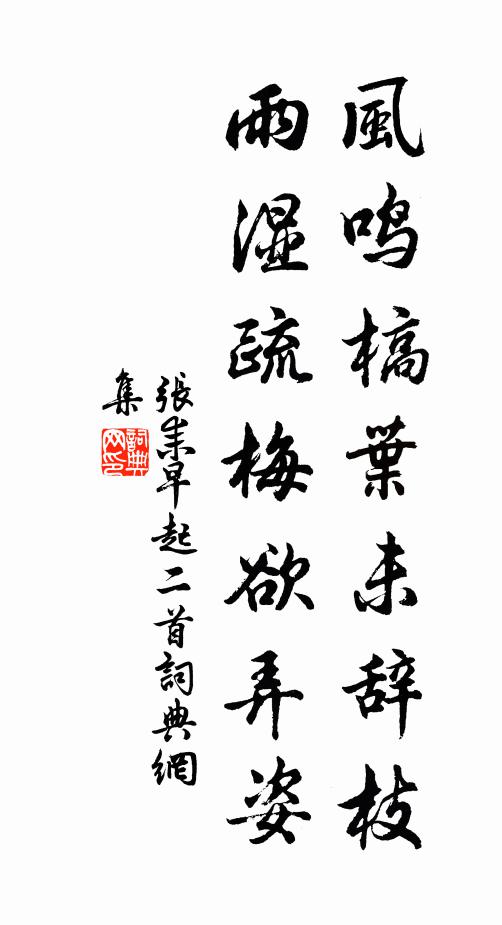 風鸣槁葉未辞枝
雨湿疏梅欲弄姿
張耒早起二首詞典網
集
詞典网印